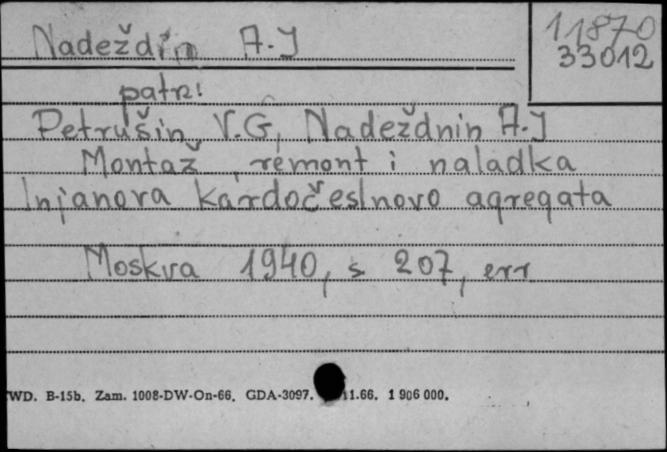 Nadeždin A.I
11870
33012
patrz:
Petrušin V.G, Nadeždnin A.I
Montaž, remont i naladka
lnjanova kardočeslnovo agregata
Moskva 1940, s 207, err
WD. B-15b. Zam. 1008-DW-On-66. GDA-3097. 11.66. 1 906 000.